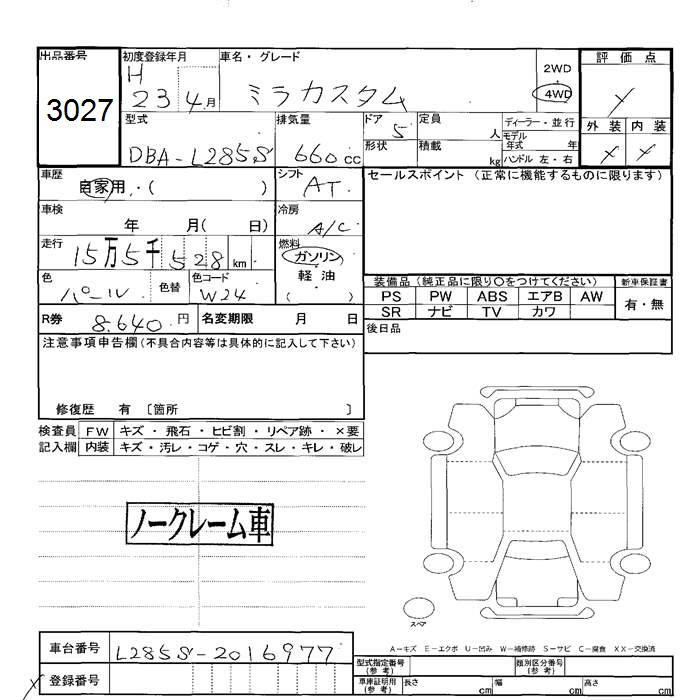 出品番号 初度登録年月 車名・グレード 2WD 評価点
3027 H 23 4月 ミラカスタム 4WD
外装 内装
型式 排気量 ドア 5 定員 人 ディーラー・並行
DBA-L285S 660cc 形状 積載 kg モデル年式 年
ハンドル 左・右
車歴 自家用・( ) シフト AT セールスポイント (正常に機能するものに限ります)
車検 年 月( 日) 冷房 A/C
走行 15万5千528km 燃料 ガソリン
軽油
( )
色 パール 色替 色コード W24
装備品 (純正品に限り〇をつけてください) 新車保証書
PS PW ABS エアB AW 有・無
SR ナビ TV カワ
R券 8.640円 名変期限 月 日 後日品
注意事項申告欄(不具合内容等は具体的に記入して下さい)
修復歴 有 〔箇所 〕
検査員 FW キズ・飛石・ヒビ割・リペア跡・×要
記入欄 内装 キズ・汚レ・コゲ・穴・スレ・キレ・破レ
ノークレーム車
スペア
A−キズ E−エクボ U−凹み W−補修跡 S−サビ C−腐食 XX−交換済
車台番号 L285S-2016977
登録番号
型式指定番号(参考) 類別区分番号(参考)
車庫証明用(参考) 長さ cm 幅 cm 高さ cm